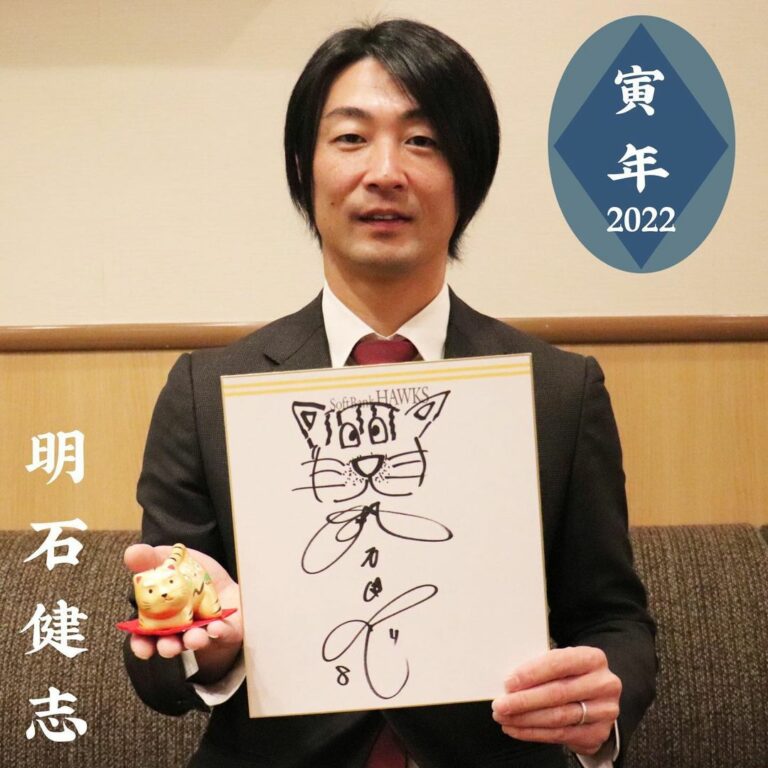 寅年
2022
SoftBank HAWKS
明石健志
8